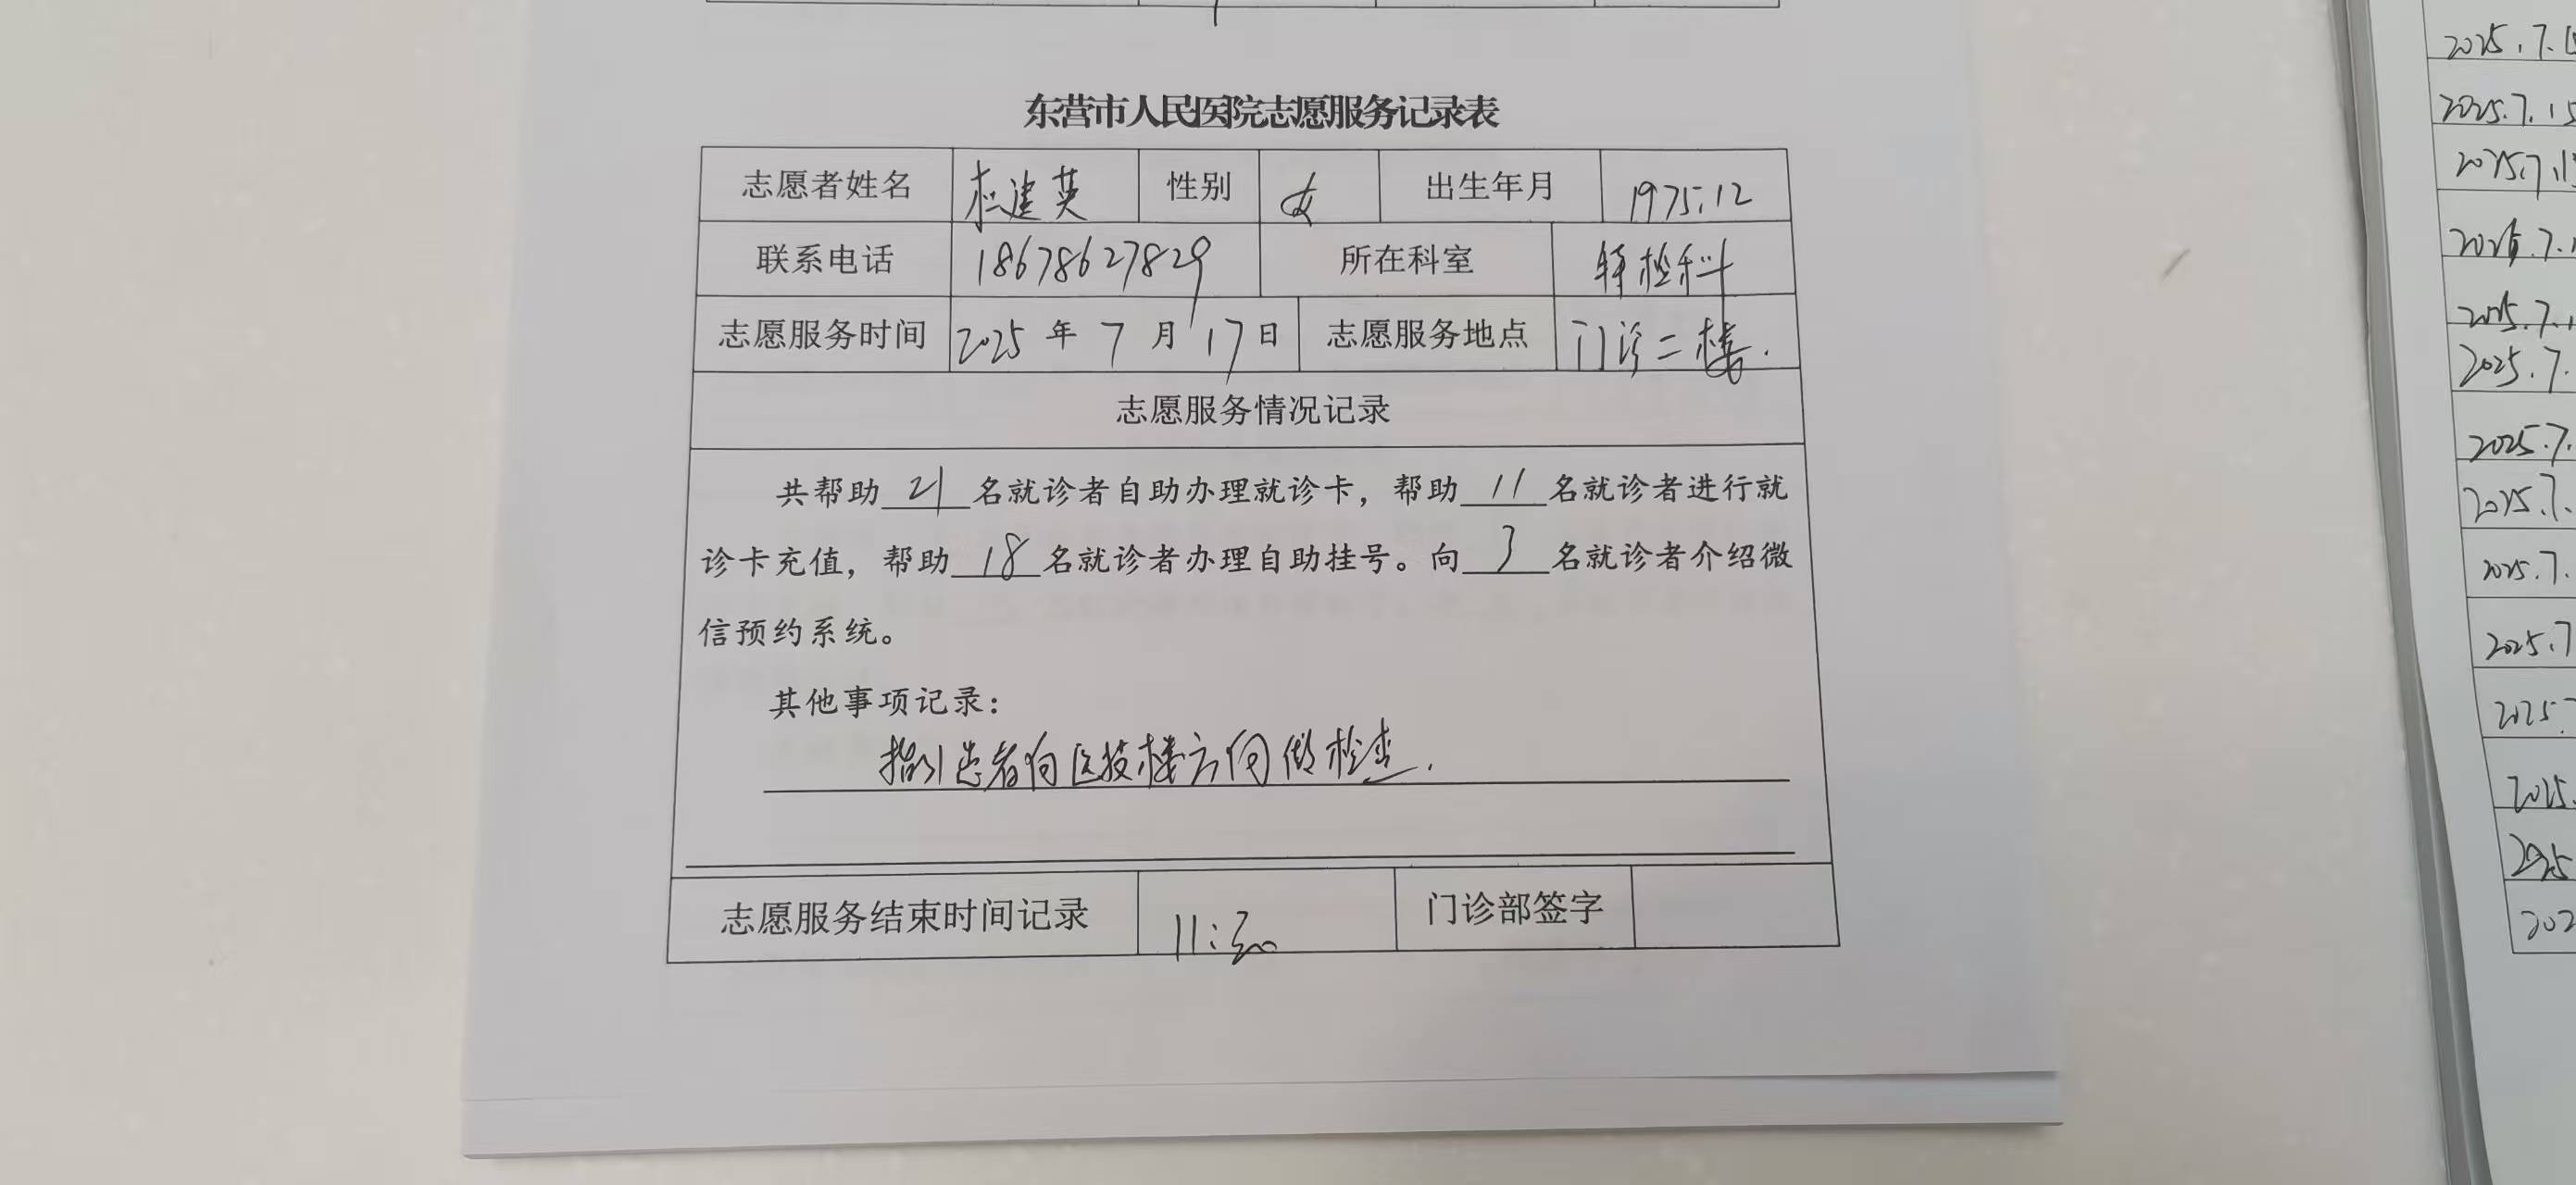 东营市人民医院志愿服务记录表
志愿者姓名 杜建英 性别 女 出生年月 1975.12
联系电话 18678627829 所在科室 特检科
志愿服务时间 2025 年 7 月 17 日 志愿服务地点 门诊二楼.
志愿服务情况记录
共帮助 21 名就诊者自助办理就诊卡，帮助 11 名就诊者进行就
诊卡充值，帮助 18 名就诊者办理自助挂号。向 3 名就诊者介绍微
信预约系统。
其他事项记录：
指引患者向医技楼方向做检查.
志愿服务结束时间记录 11:30 门诊部签字
2025.7.15
2025.7
2025.7.
2025.7.
2025.7.
2025.7.
2025.7
2025
2025
202